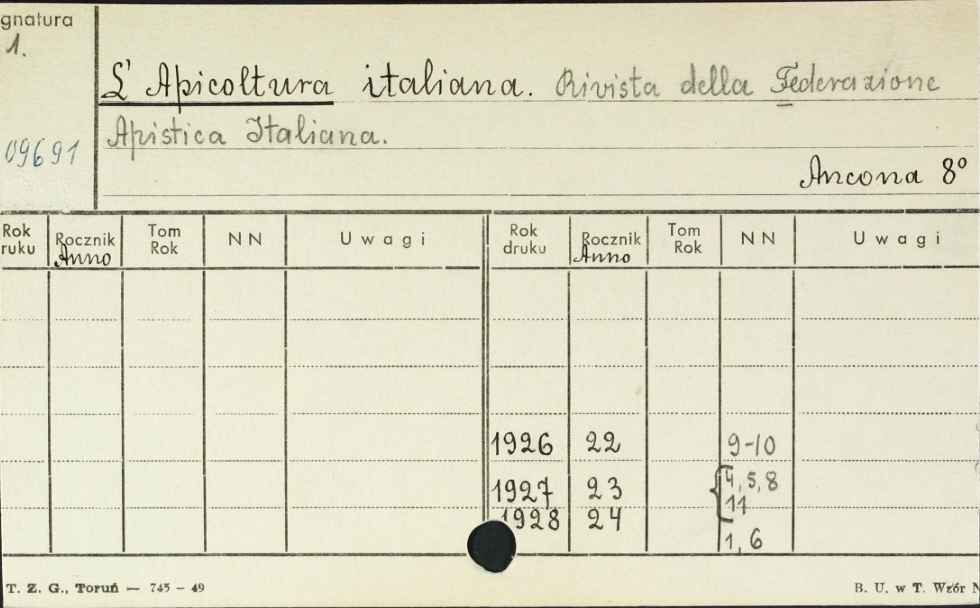 gnatura
1.
L' Apicoltura italiana. Rivista della Federazione
Apistica Italiana.
09691
Ancona 8°
Rok ruku Rocznik Anno Tom Rok N N Uwagi Rok druku Rocznik Anno Tom Rok N N Uwagi
1926 22 9-10
1927 23 4, 5, 8
11
1928 24
1, 6
T. Z. G., Toruń — 745 – 49 B. U. w T. Wzór N